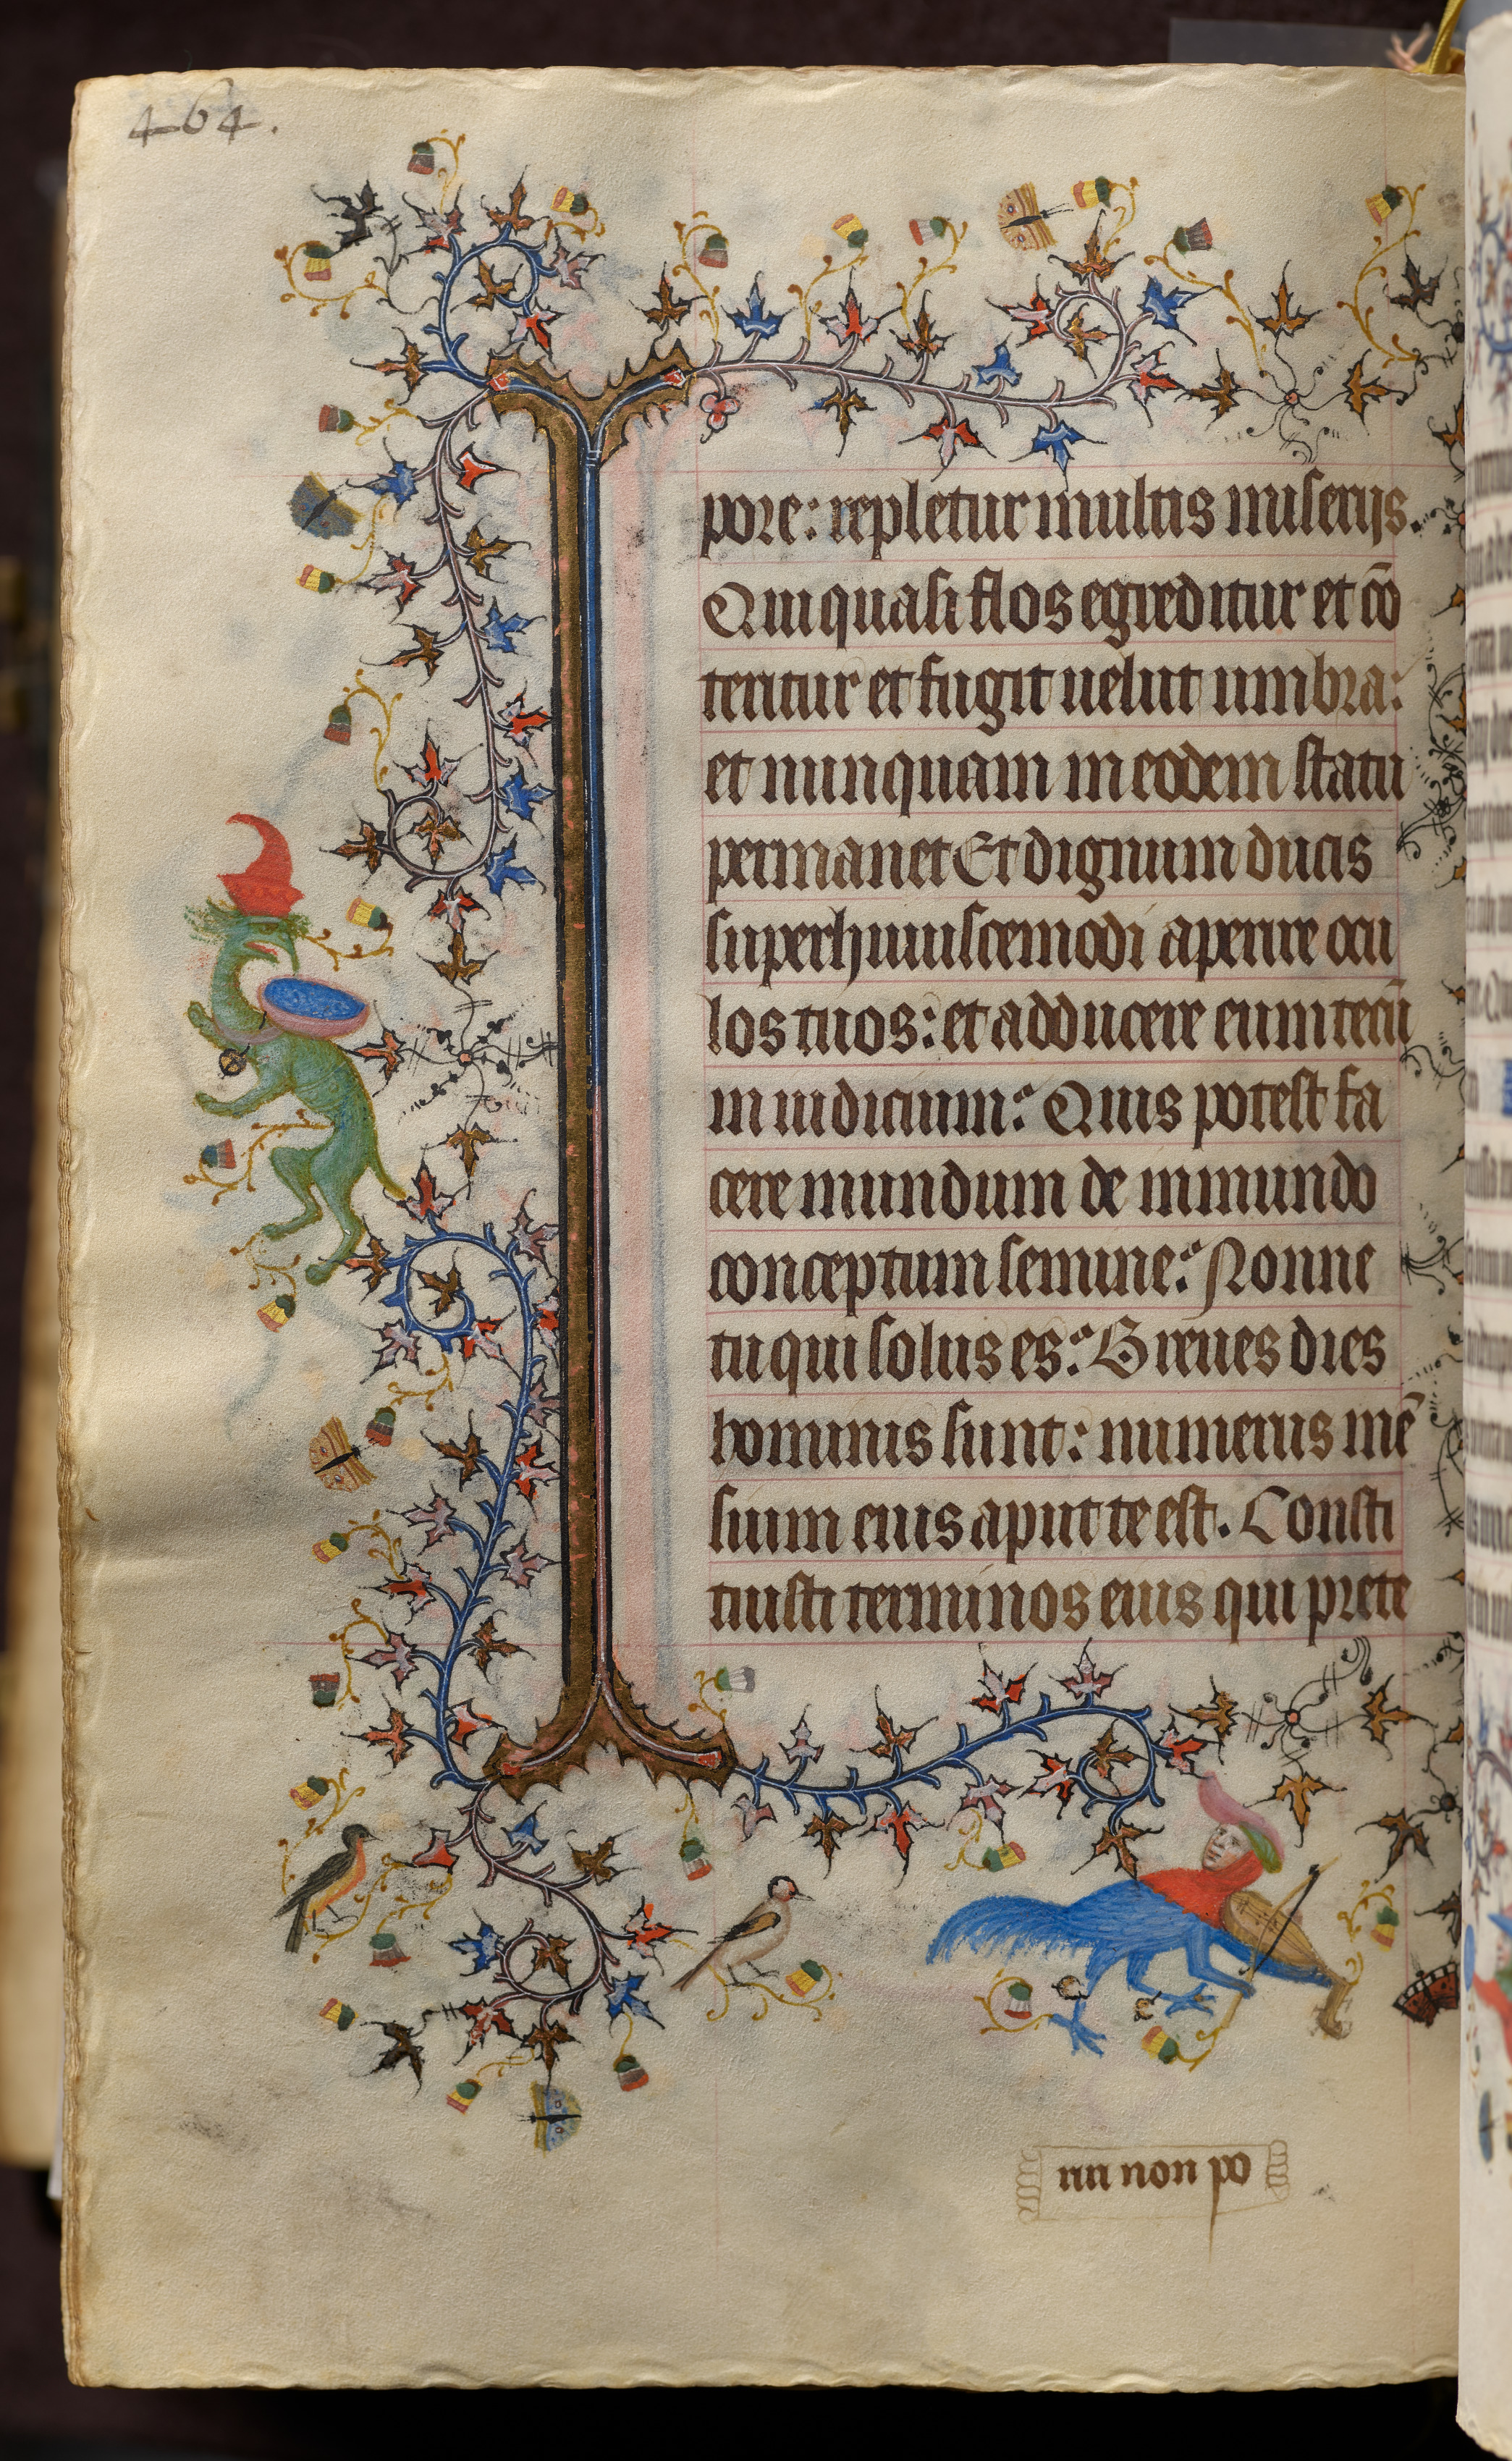 464.
pore: repletur multis miserijs.
Qui quasi flos egreditur et cō
teritur et fugit uelut umbra:
et nunquam in eodem statu
permanet Et dignum ducis
super huiuscemodi aperire ocu
los tuos: et adducere eum tecū
in iudicium? Quis potest fa
cere mundum de inmundo
conceptum semine? Nonne
tu qui solus es? Breues dies
hominis sunt: numerus mē
sium eius aput te est. Consti
tuisti terminos eius qui prete
riri non po